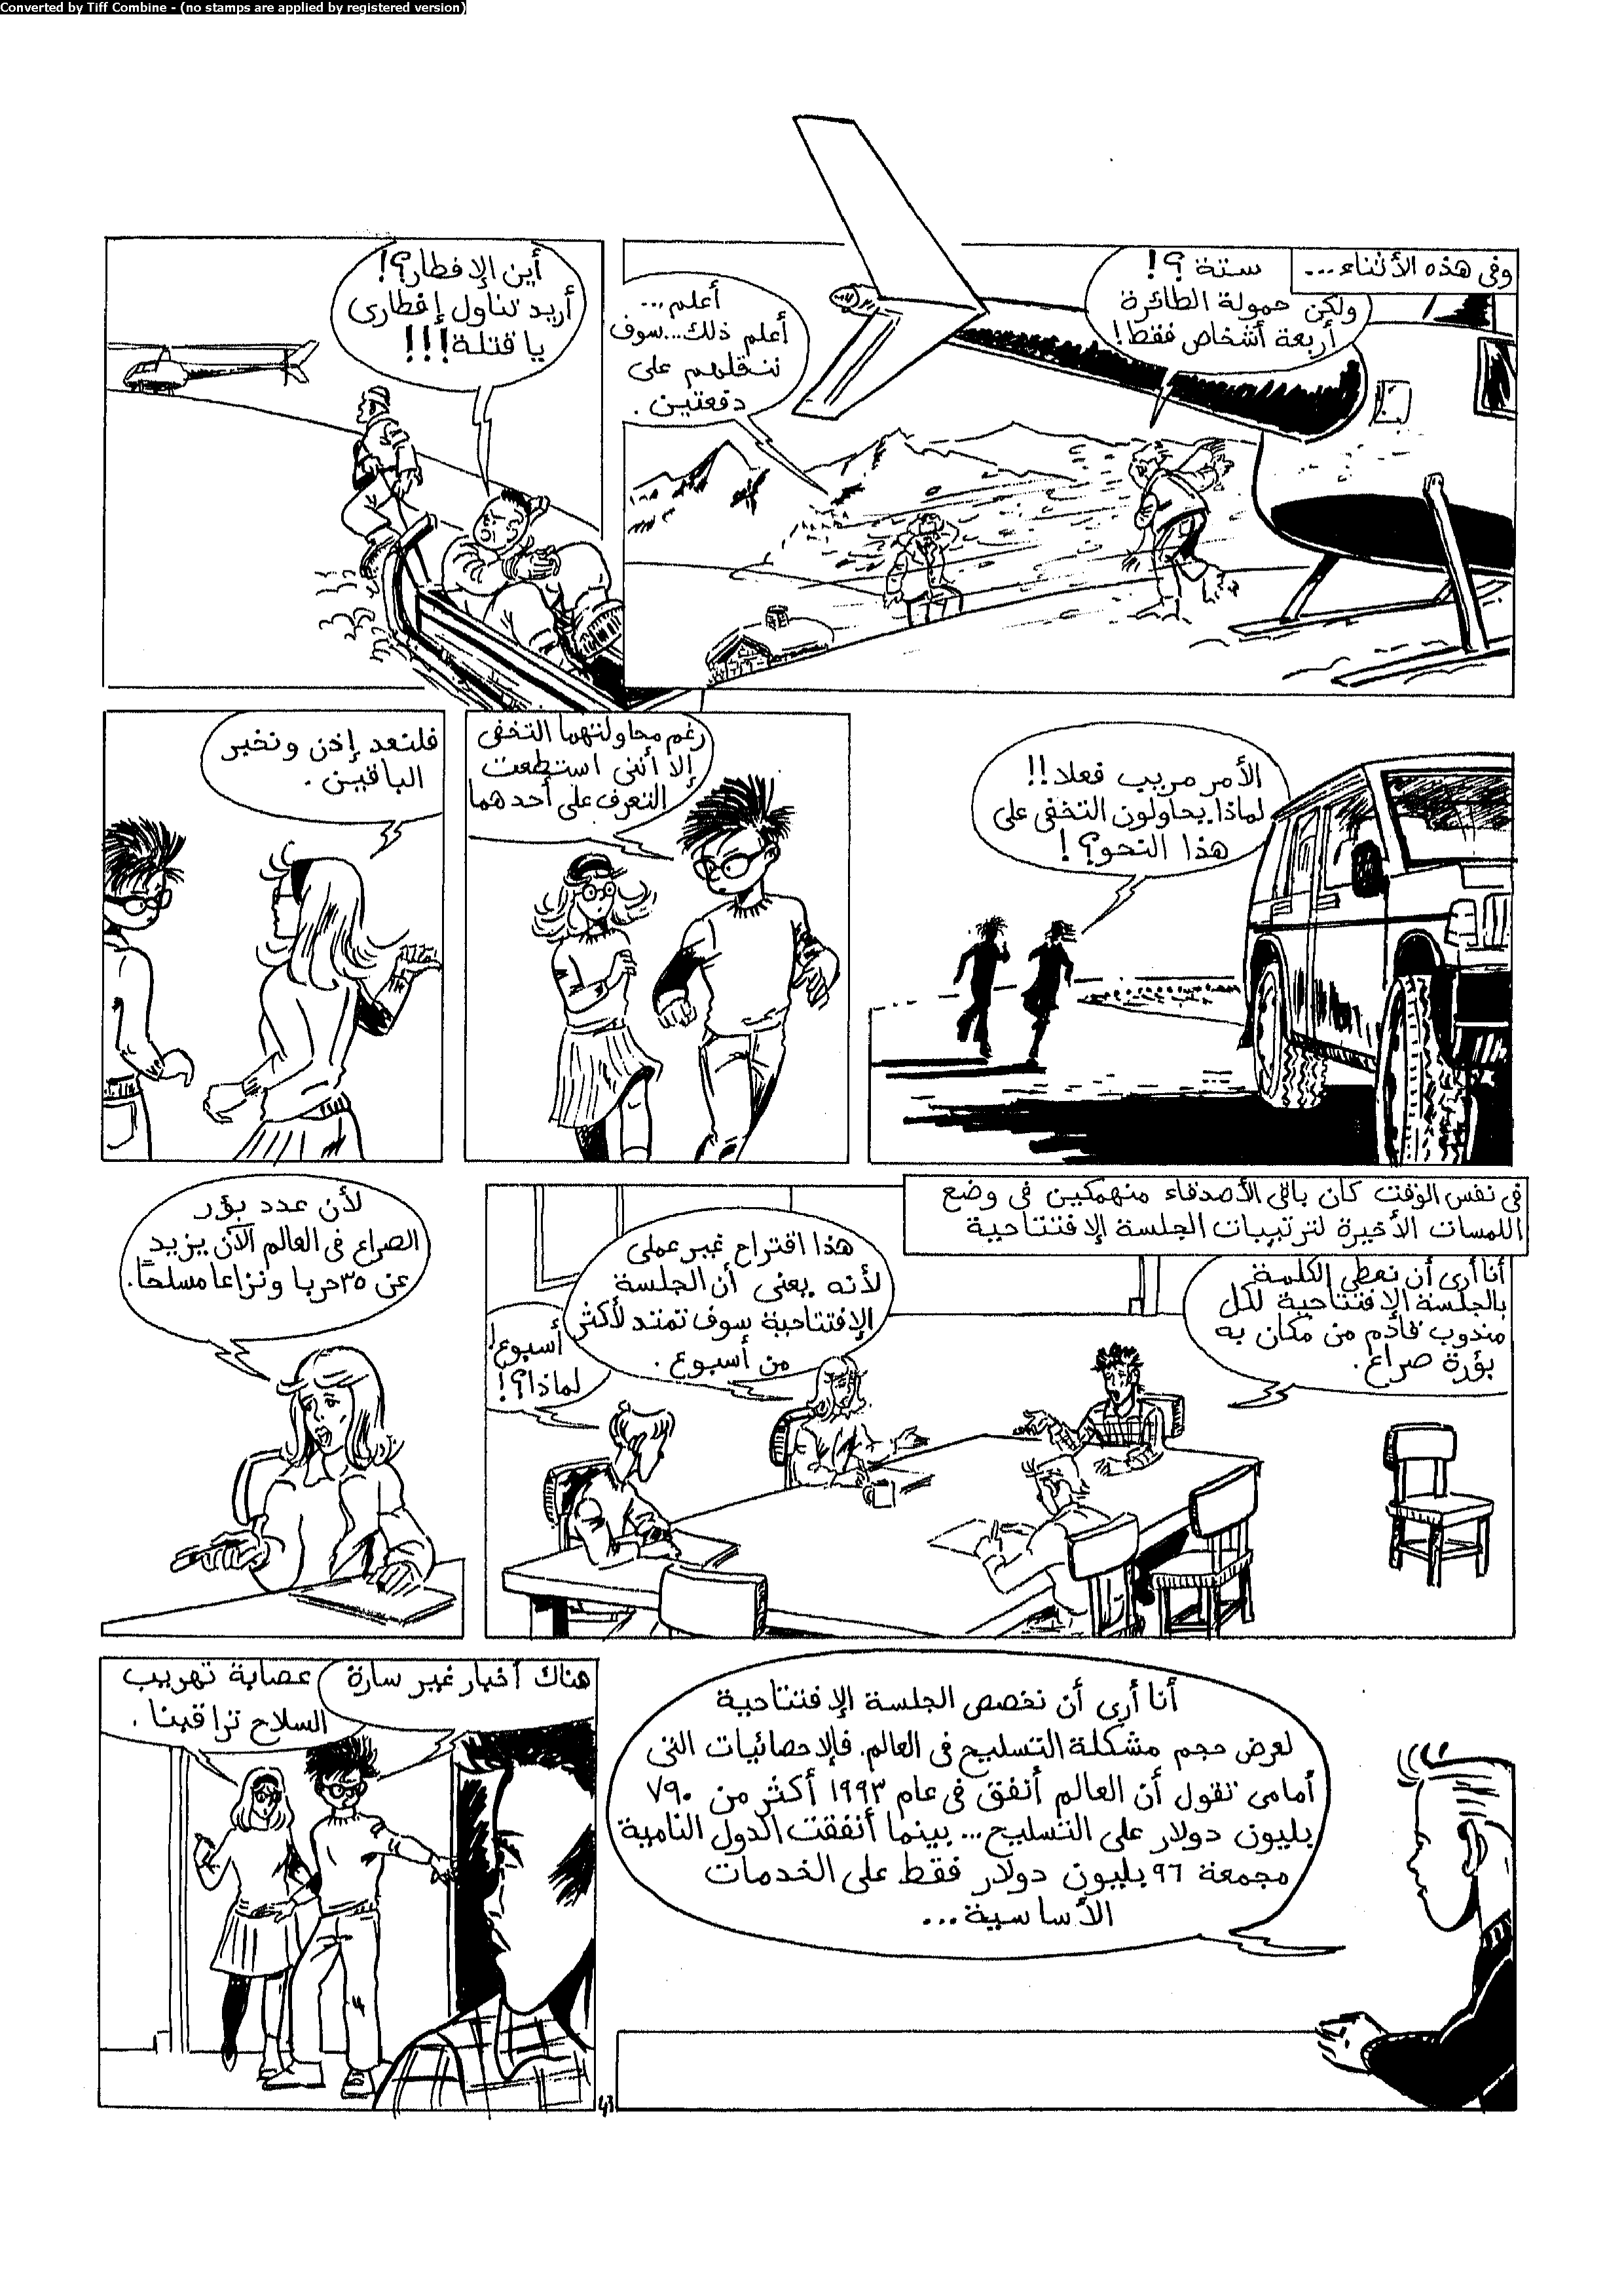 Converted by Tiff Combine - (no stamps are applied by registered version)
وفى هذه الأثناء...
ستة ؟!
ولكن حمولة الطائرة
أربعة أشخاص فقط!
أعلم...
أعلم ذلك...سوف
ننقلهم على
دفعتين.
أين الإفطار؟!
أريد تناول إفطارى
يا قتلة!!!
الأمر مريب فعلا!!
لماذا يحاولون التخفى على
هذا النحو؟!
رغم محاولتهما التخفى
إلا أننى استطعت
التعرف على أحدهما
فلنعد إذن ونخبر
الباقين.
فى نفس الوقت كان باقى الأصدقاء منهمكين فى وضع
اللمسات الأخيرة لترتيبات الجلسة الإفتتاحية
أنا أرى أن نعطى الكلمة
بالجلسة الإفتتاحية لكل
مندوب قادم من مكان به
بؤرة صراع.
هذا اقتراح غير عملى
لأنه يعنى أن الجلسة
الإفتتاحية سوف تمتد لأكثر
من أسبوع.
أسبوع!
لماذا؟!
لأن عدد بؤر
الصراع فى العالم الآن يزيد
عن ٣٥ حربا ونزاعا مسلحاً.
أنا أرى أن نخصص الجلسة الإفتتاحية
لعرض حجم مشكلة التسليح فى العالم. فالإحصائيات التى
أمامى تقول أن العالم أنفق فى عام ١٩٩٣ أكثر من ٧٩٠
بليون دولار على التسليح... بينما أنفقت الدول النامية
مجمعة ٩٦ بليون دولار فقط على الخدمات
الأساسية...
هناك أخبار غير سارة
عصابة تهريب
السلاح تراقبنا.
43